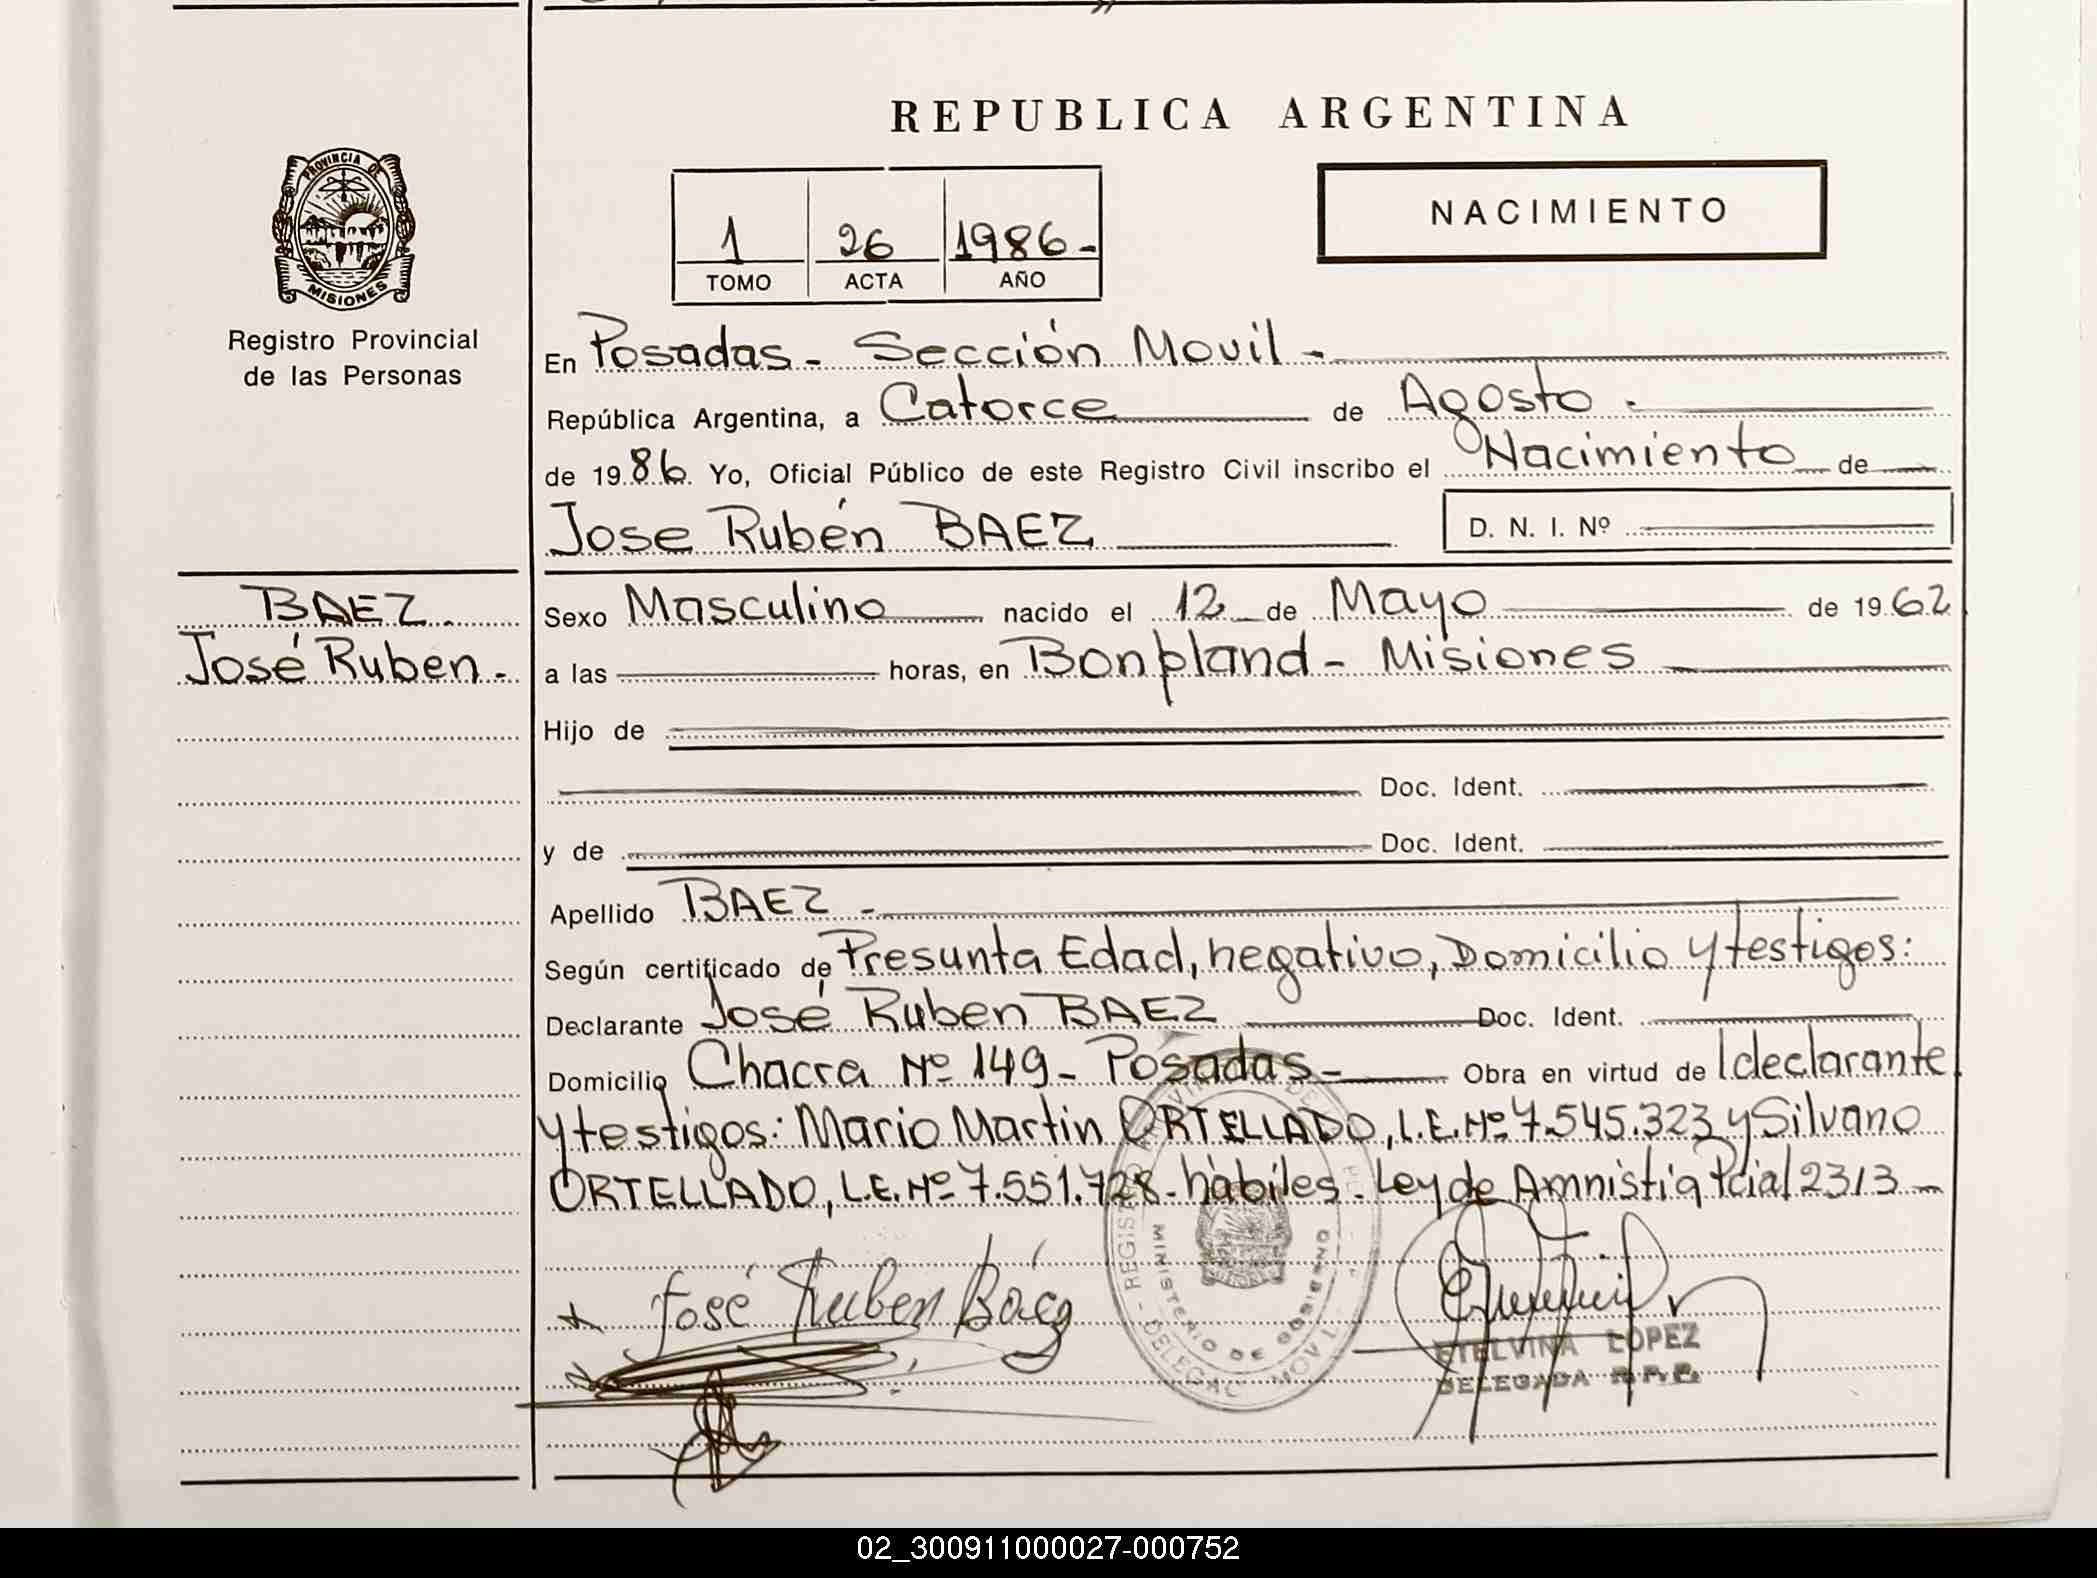 REPUBLICA ARGENTINA
PROVINCIA DE
MISIONES
Registro Provincial
de las Personas
1 26 1986-
TOMO ACTA AÑO
NACIMIENTO
En Posadas - Sección Movil -
República Argentina, a Catorce de Agosto.
de 1986. Yo, Oficial Público de este Registro Civil inscribo el Nacimiento de
Jose Rubén BAEZ
D. N. I. Nº
BAEZ.
José Ruben.-
Sexo Masculino nacido el 12 de Mayo de 1962
a las horas, en Bonpland - Misiones
Hijo de
Doc. Ident.
y de Doc. Ident.
Apellido BAEZ -
Según certificado de Presunta Edad, negativo, Domicilio y testigos:
Declarante José Ruben BAEZ Doc. Ident.
Domicilio Chacra Nº 149 - Posadas - Obra en virtud de l declarante
y testigos: Mario Martin ORTELLADO, L.E. Nº 7.545.323 y Silvano
ORTELLADO, L.E. Nº 7.551.728 - hábiles - Ley de Amnistia Pcial 2313 -
José Ruben Báez
MINISTERIO DE GOBIERNO
ETELVINA LOPEZ
DELEGADA R.P.P.
02_300911000027-000752